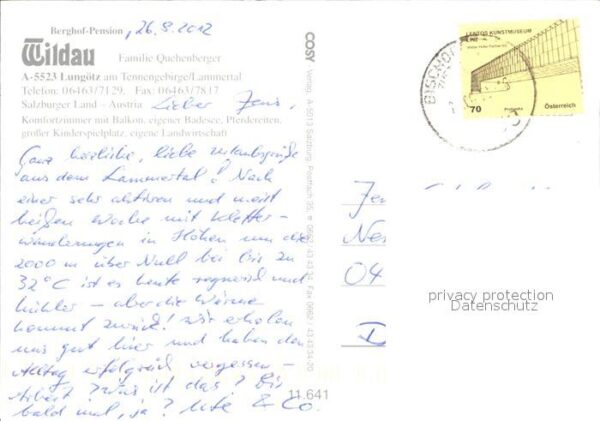 Berghof-Pension, 26.8.2012
Wildau
Familie Quehenberger
A-5523 Lungötz am Tennengebirge/Lammertal
Telefon: 06463/7129, Fax: 06463/7817
Salzburger Land – Austria
Komfortzimmer mit Balkon, eigener Badesee, Pferdereiten,
großer Kinderspielplatz, eigene Landwirtschaft
Lieber Jens,
Ganz herzliche, liebe Urlaubsgrüße
aus dem Lammertal! Nach
einer sehr aktiven und meist
heißen Woche mit Kletter-
wanderungen in Höhen um die
2000 m über Null bei bis zu
32°C ist es heute regnerisch und
kühler – aber die Wärme
kommt zurück! Wir erholen
uns gut hier und haben den
Alltag erfolgreich vergessen –
Arbeit? Was ist das? Bis
bald mal, ja? Ute & Co.
COSY Verlag, A-5013 Salzburg
11.641
LENTOS KUNSTMUSEUM
LINZ
70
Österreich
BISCHOF
Jen
Ne
04
D
privacy protection
Datenschutz